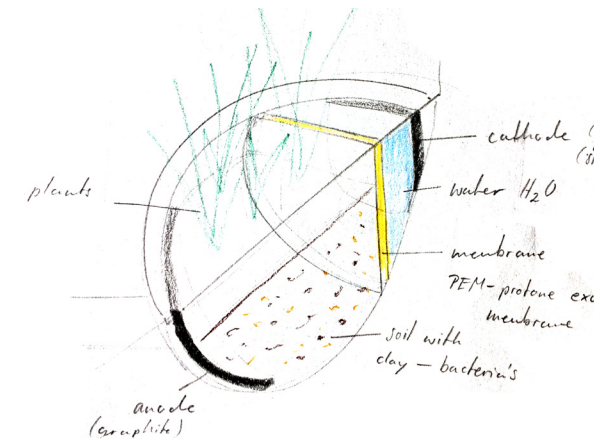 cathode (
plants
water H₂O
membrane
PEM-protone exc
membrane
soil with
clay – bacteria's
anode
(graphite)